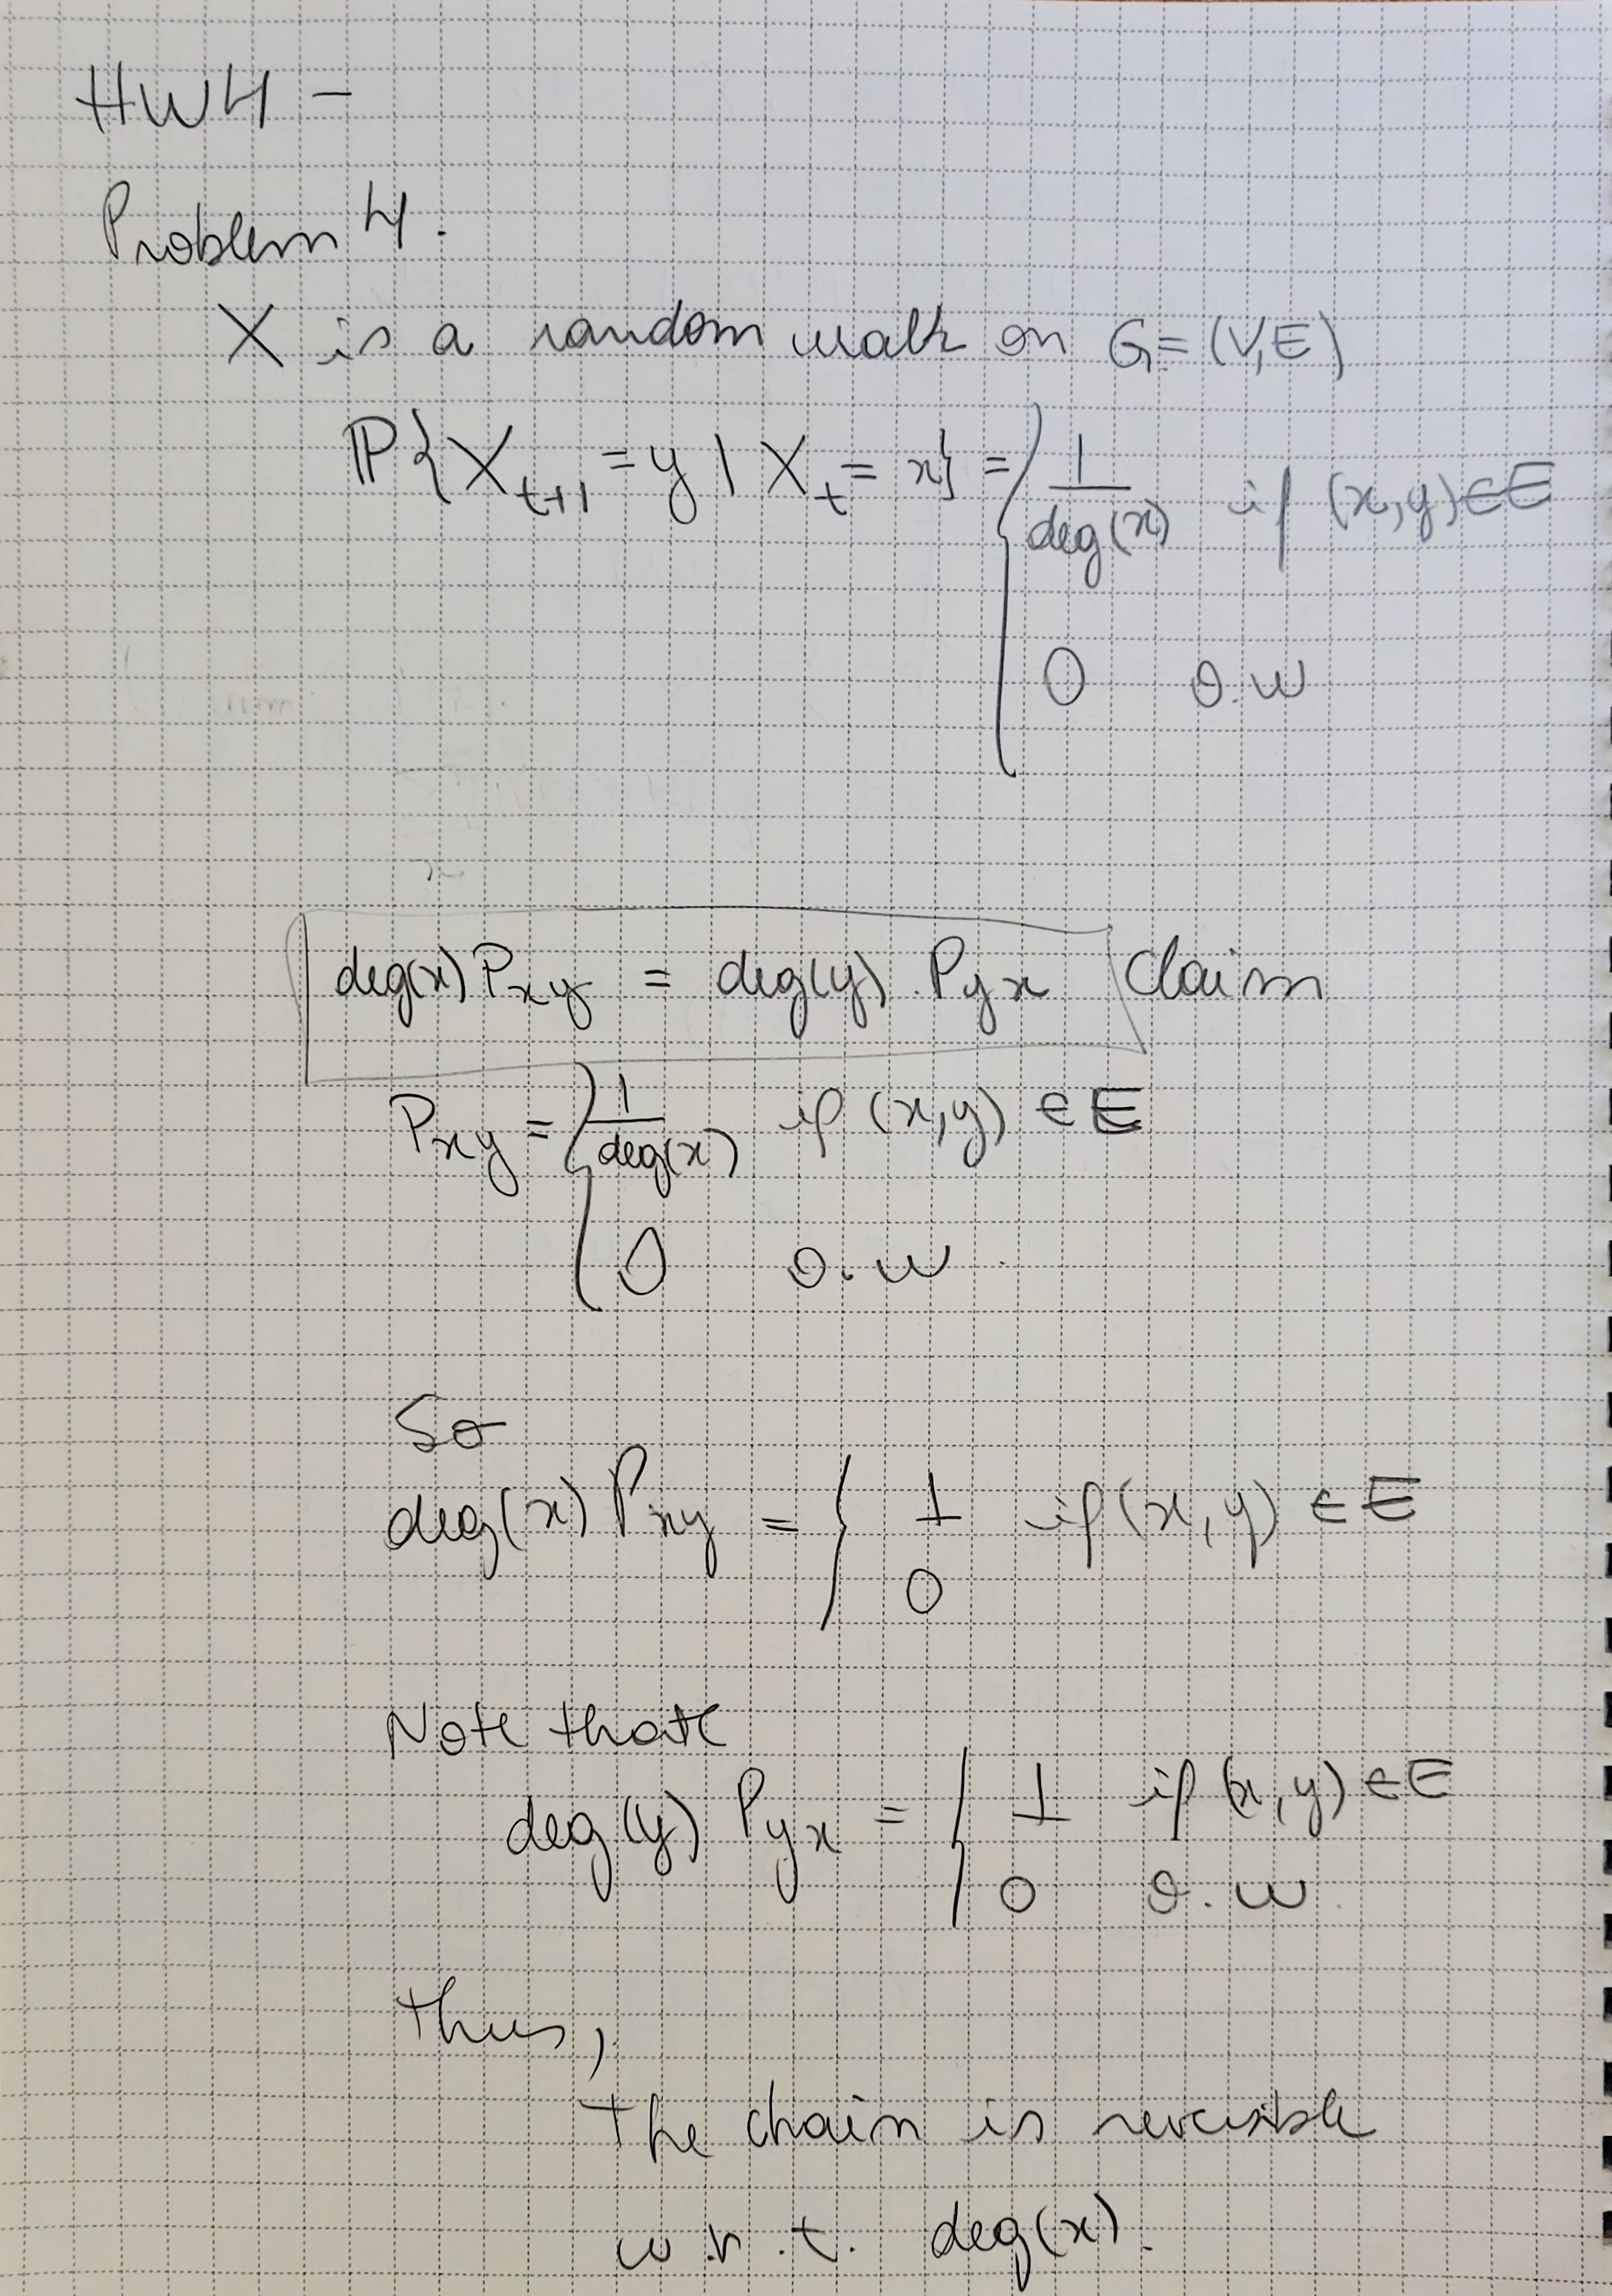 HW4 -
Problem 4.
X is a random walk on G=(V,E)
ℙ{X_{t+1} = y | X_t = x} = { 1/deg(x) if (x,y)∈E
0 o.w
deg(x) P_{xy} = deg(y) . P_{yx} Claim
P_{xy} = { 1/deg(x) if (x,y) ∈ E
0 o.w.
So
deg(x) P_{xy} = { 1 if (x,y) ∈ E
0
Note that
deg(y) P_{yx} = { 1 if (x,y) ∈ E
0 o.w.
thus,
the chain is reversible
w.r.t. deg(x).